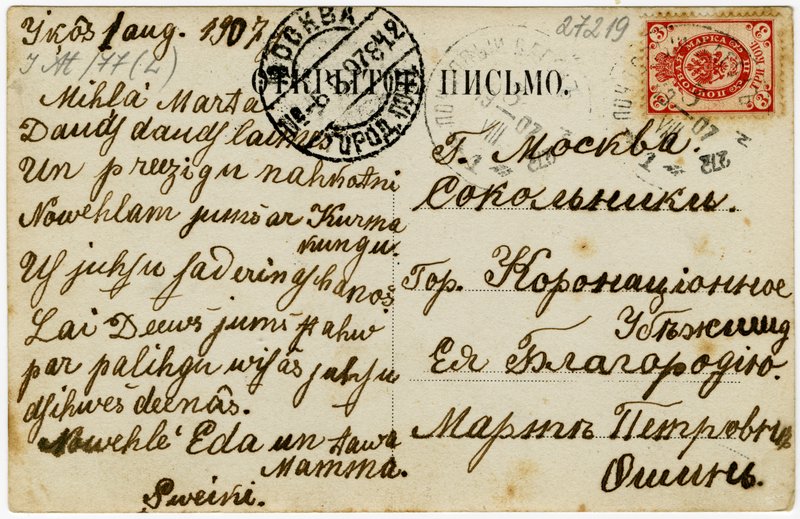 1 aug. 1907
27219
ОТКРЫТОЕ ПИСЬМО.
Mihļa Marta
Daudſ daudſ laimes
Un preezigu nahkotni
Nowehlam jums ar Kurma
kungu.
Uſ juhſu ſaderinaſchanos
Lai Deews jums ſtahw
par palihgu wiſâs juhſu
dſihwes deenâs.
Nowehlé Eda un tawa
Mamma.
Sweiki.
Г. Москва.
Сокольники.
Гор. Коронаціонное
Убѣжище
Ея Благородію.
Марти Петровнѣ
Ошинь.
МОСКВА